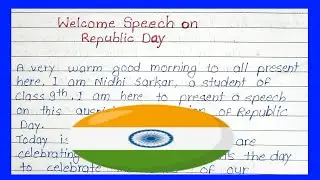 Welcome Speech on
Republic Day
A very warm good morning to all present
here. I am Nidhi Sarkar, a student of
class 9th. I am here to present a speech
on this of Republic
Day.
Today is are
celebrating the day
to celebrate of our